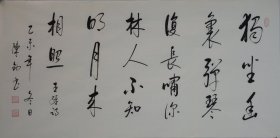 獨坐幽
篁裏彈琴
復長嘯深
林人不知
明月來
相照 王維詩
乙未年冬日